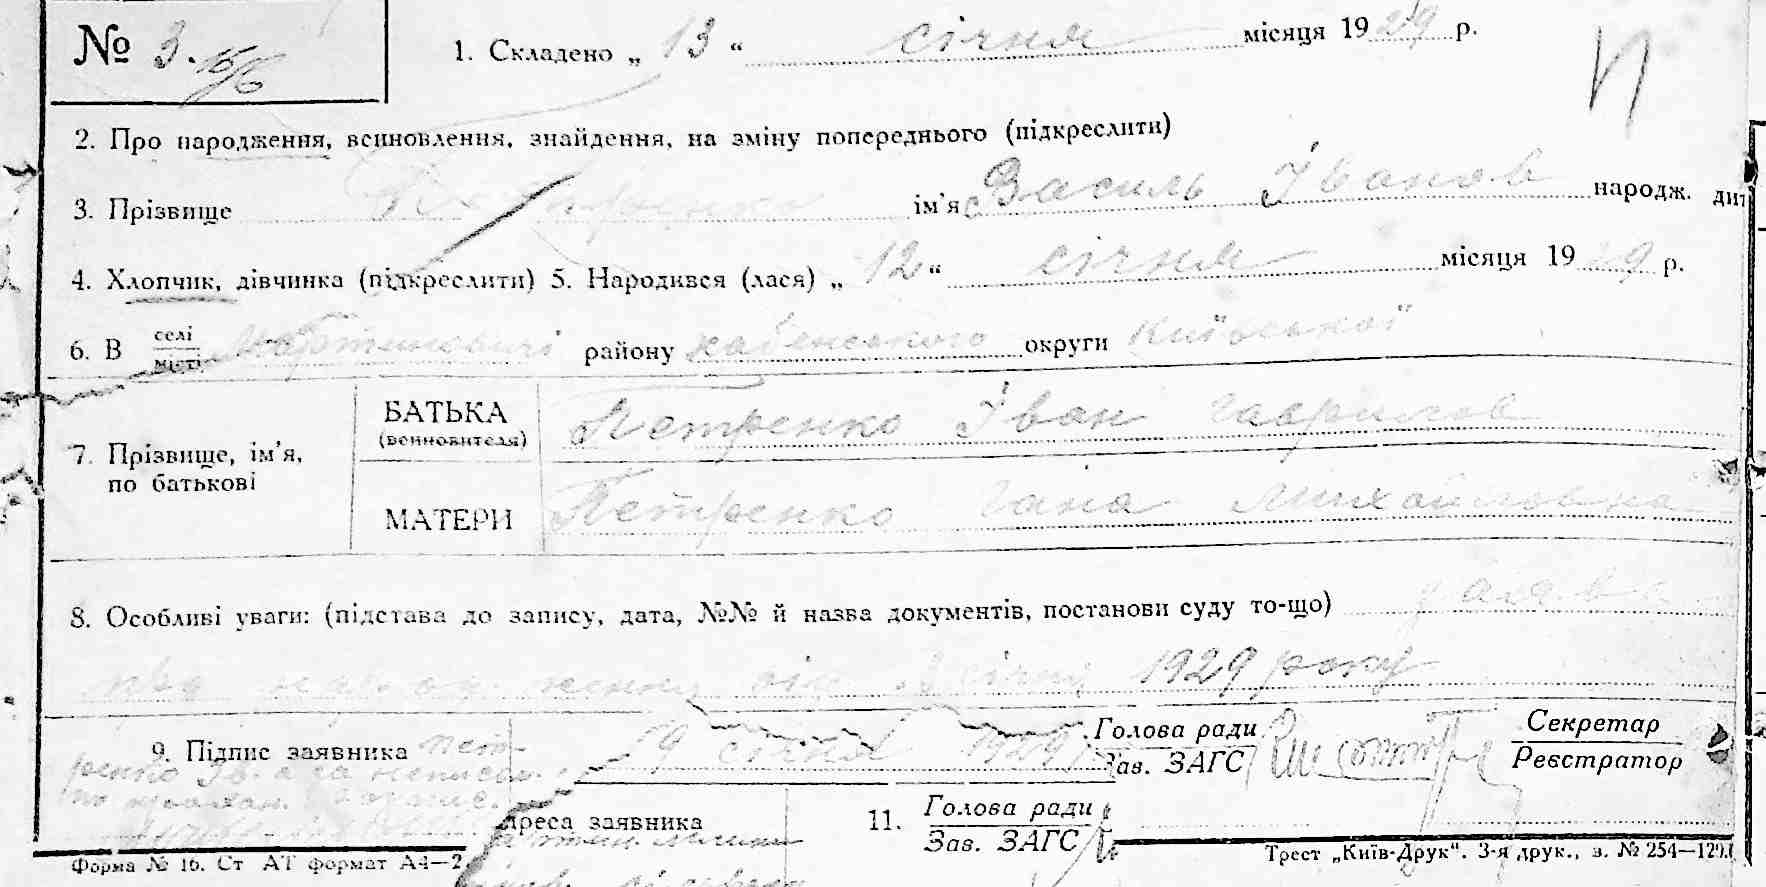 № 3. 16/6
1. Складено „ 13 “ січня місяця 1929 р.
2. Про народження, всиновлення, знайдення, на зміну попереднього (підкреслити)
3. Прізвище Петренко ім'я Василь Іванов народж. дит
4. Хлопчик, дівчинка (підкреслити) 5. Народився (лася) „ 12 “ січня місяця 1929 р.
6. В селі місті Мартиновичі району хабенського округи Київської
7. Прізвище, ім'я, по батькові
БАТЬКА (всиновителя) Петренко Іван гаврилов
МАТЕРИ Петренко гана Михайловна
8. Особливі уваги: (підстава до запису, дата, №№ й назва документів, постанови суду то-що) заява
про народження від січня 1929 року
9. Підпис заявника Пет-
ренко Ів. а за неписьм.
19 січня 1929
Голова ради
Зав. ЗАГС
Секретар
Реєстратор
адреса заявника
11. Голова ради
Зав. ЗАГС
Форма № 16. Ст АТ формат А4—2
Трест „Київ-Друк“. 3-я друк., з. № 254—129.